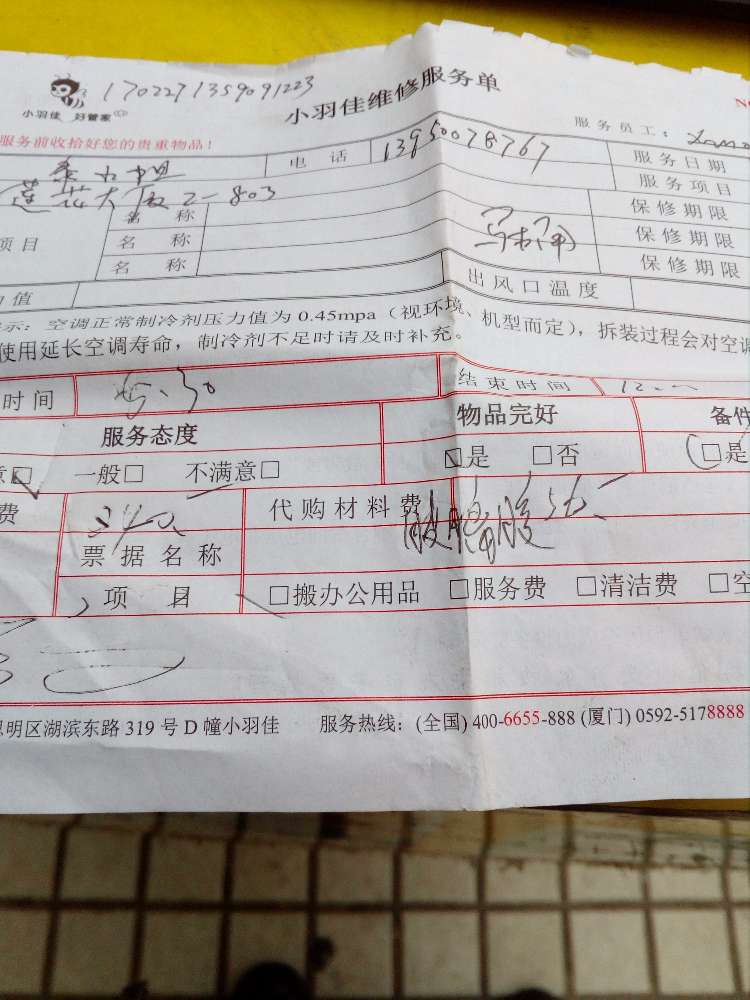 1702271359091223
小羽佳维修服务单
小羽佳 好管家
服务员工:
服务前收拾好您的贵重物品!
电话 13950078767 服务日期
莲花大厦2-803 服务项目
名称 保修期限
项目 名称 保修期限
名称 保修期限
力值 出风口温度
示: 空调正常制冷剂压力值为 0.45mpa (视环境、机型而定), 拆装过程会对空调
使用延长空调寿命, 制冷剂不足时请及时补充。
时间 结束时间
服务态度 物品完好 备件
意☑ 一般□ 不满意□ ☑是 □否 □是
费 代购材料费
票据名称
项目 □搬办公用品 □服务费 □清洁费 □空
思明区湖滨东路 319 号 D 幢小羽佳 服务热线: (全国) 400-6655-888 (厦门) 0592-5178888